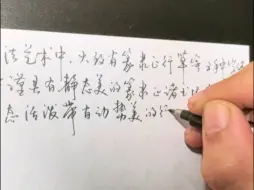 法艺术中，大致有篆隶正行草等五种字体
谨具有静态美的篆隶正诸书
态活泼带有动势美的行